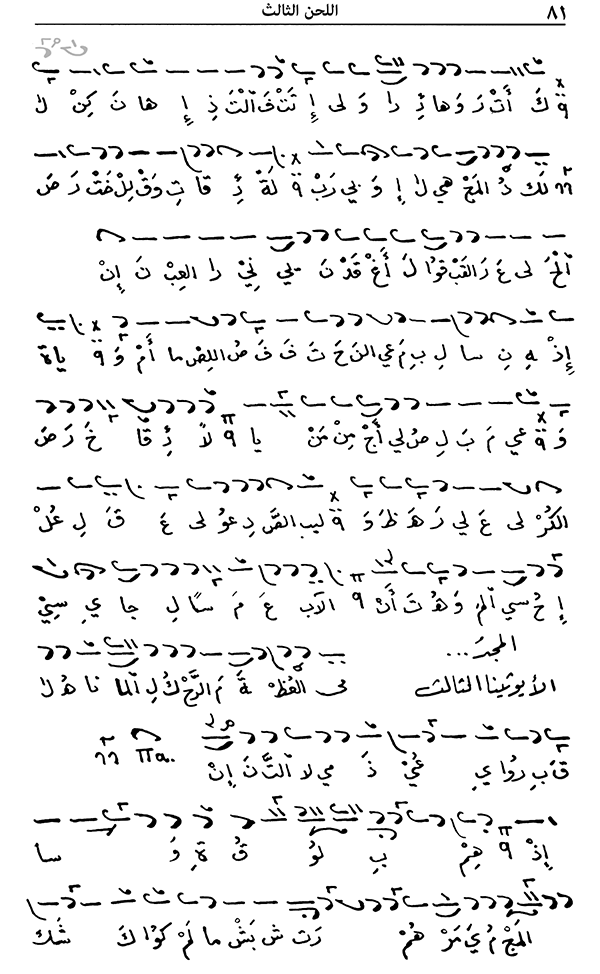 ٨١ اللحن الثالث
كَ أَتْ رَ وَ هائِذٍ را وَ لى إِ تَتْ فَ الْتَ ذِ إِ ها نَ كِنْ لا
لَكَ دُ المَجْ هي لا إِ وَ بي رَبْ لَةً ئِ قا تِ وَقْ لِلْ خَتْ رَ صَ
الْحَ لى عَ رَ القَبْ قوا لَ أَغْ قَدْ نَ ـلي نِيْ را العِبْ نَ إِنْ
إِذْ هِ نِ سا لِ بِ مَ عي النَ حَ تَ فَ فَ صُ اللِصْ ما أَمْ وَ ياةَ
وَ عي مَ بَ لِ صُ لي أَجْ مِنْ مَنْ يا لاً ئِ قا خَ رَ صَ
الكُرْ لى عَ لي رَ هَ ظَ وَ ليب الصَّ دِ عو لى عَ قَ لِ عُلْ
إِ حُ سي الْمَ وَ هُ تَ أَنْ الآب عَ مَ سًا لِ جا يِ سِيْ
المجدَ...
الأيوثينا الثالث في العُظْ ةً مَ الرَّحْ كُ لِ الْمَا نا هُ لا
قَ بِ رِوا يِ غَيْ ذَ مي لا التَّ نَ إِنْ
إِذْ هِمْ بِ لو قُ ةِ وَ سا
المَجْ مُ يَ مَرْ هُمْ رَتْ ش بَشْ ما لَمْ كوا كَ شَكْ